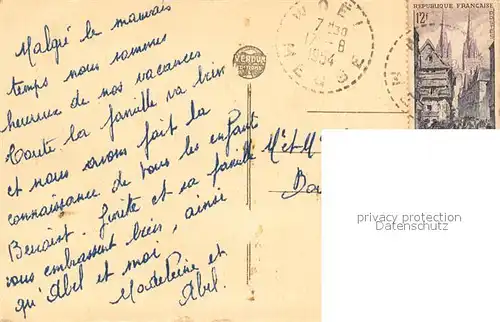 Malgré le mauvais
temps nous sommes
heureux de nos vacances
Toute la famille va bien
et nous avons fait la
connaissance de tous les enfants
Benoist. Ginette et sa famille
vous embrassent bien, ainsi
qu'Abel et moi
Madeleine et
Abel.
VERDUN
7 H 30
8
1954
MEUSE
REPUBLIQUE FRANÇAISE
12F
Mr et M
privacy protection
Datenschutz